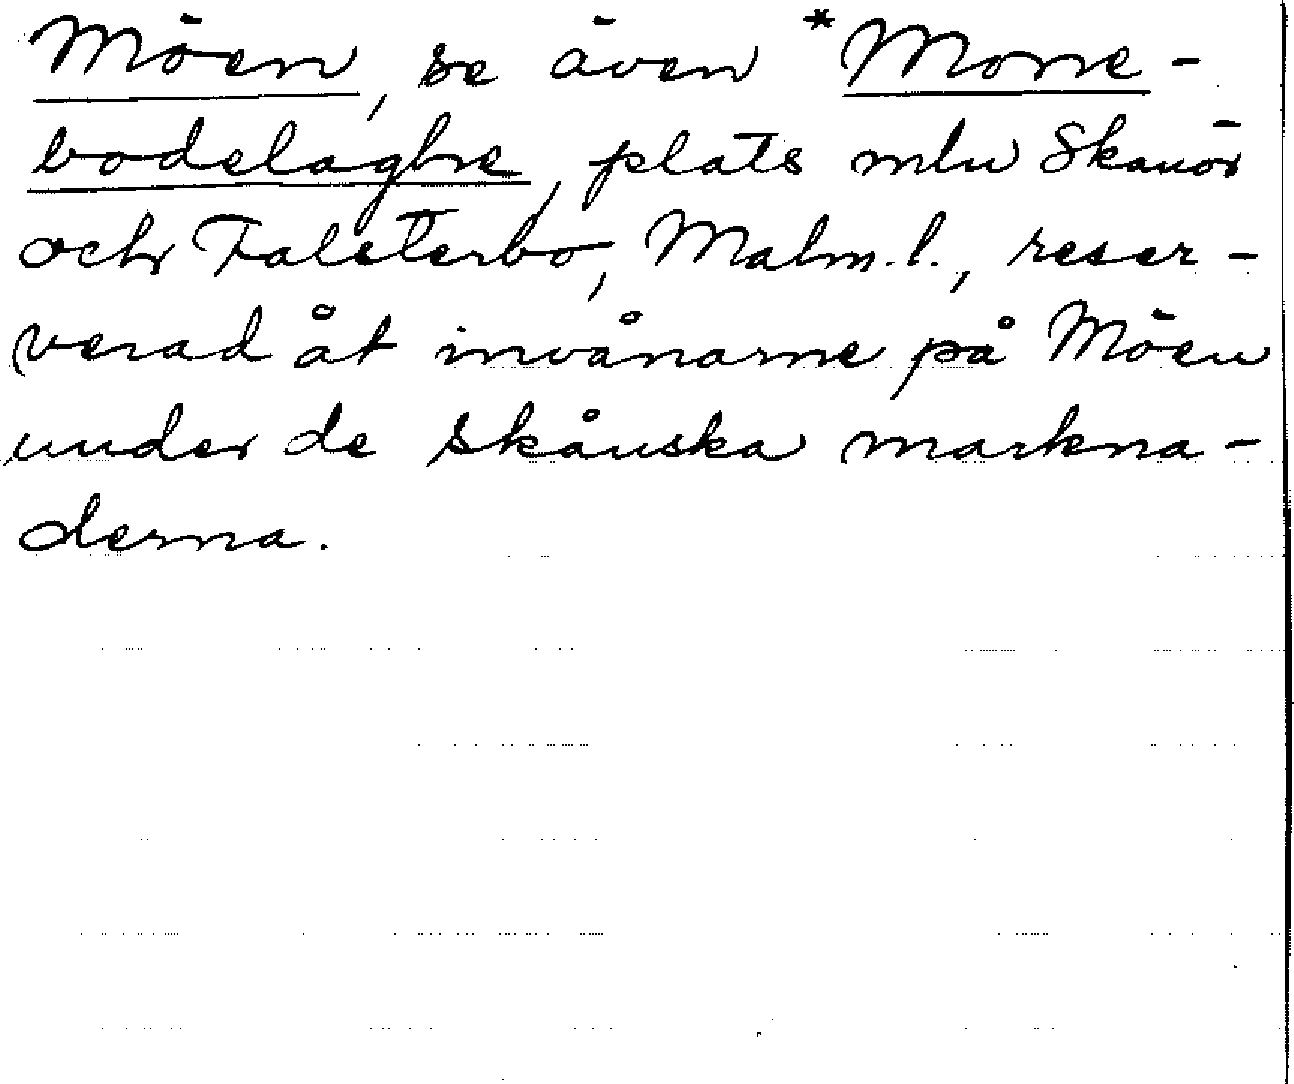 Möen, se även *Mone-
bodelaghe, plats mlu Skanör
och Falsterbo, Malm.l., reser-
verad åt invånarne på Möen
under de skånska markna-
derna.